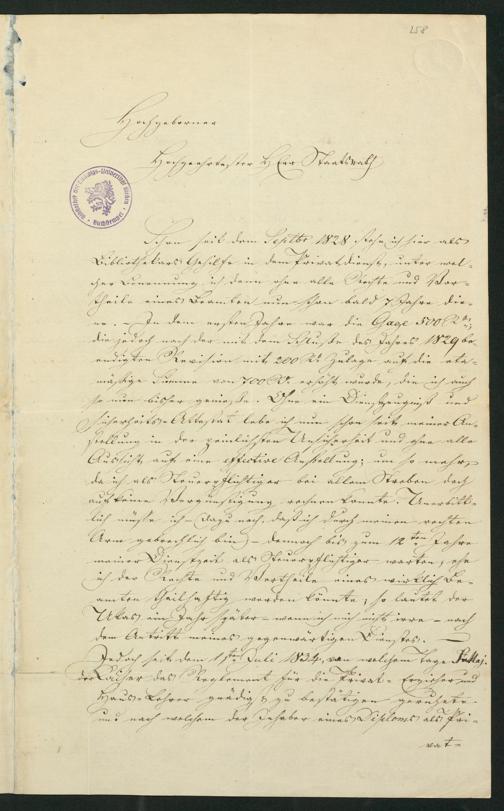 158
Hochgeborner
Hochgeehrtester HErr Staatsrath
Schon seit dem Septbr 1828 stehe ich hier als
Bibliothekars-Gehilfe in dem Privatdienste, unter wel-
cher Benennung ich denn ohne alle Rechte und Vor-
theile eines Beamten nun schon bald 7 Jahre die-
ne. – In dem ersten Jahre war die Gage 500 R.
die jedoch nach der mit dem Schlusse des Jahres 1829 be-
endigten Revision mit 200 R. Zulage auf die eta-
mäßige Summe von 700 R. erhöht wurde, die ich auch
so nun bisher genieße. Ohne ein Dienstzeugniß und
Sicherheits-Attestat lebe ich nun schon seit meiner An-
stellung in der peinlichsten Unsicherheit und ohne alle
Aussicht auf eine effective Anstellung; um so mehr,
da ich als Steuerpflichtiger bei allem Streben doch
auf keine Vergünstigung rechnen konnte. Unerbitt-
lich müßte ich – dazu noch, daß ich durch meinen rechten
Arm gebrechlich bin – dennoch bis zum 12ten Jahre
meiner Dienstzeit als Steuerpflichtiger warten, ehe
ich der Rechte und Vortheile eines wirklich Be-
amten theilhaftig werden könnte, so lautet der
Ukas ein Jahr später – wenn ich mich nicht irre – nach
dem Antritt meines gegenwärtigen Dienstes. –
Jedoch seit dem 1sten Juli 1834, von welchem Tage S. Maj.
der Kaiser das Reglement für die Privat-Erzieher und
Haus-Lehrer gnädigst zu bestätigen geruhete
und nach welchem der Inhaber eines Diploms als Pri-
vat-